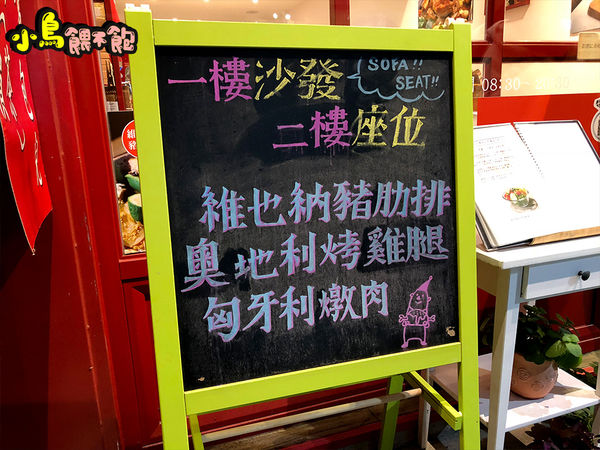 小鳥餵不飽
一樓沙發
SOFA!!
SEAT!!
二樓座位
維也納豬肋排
奧地利烤雞腿
匈牙利燉肉